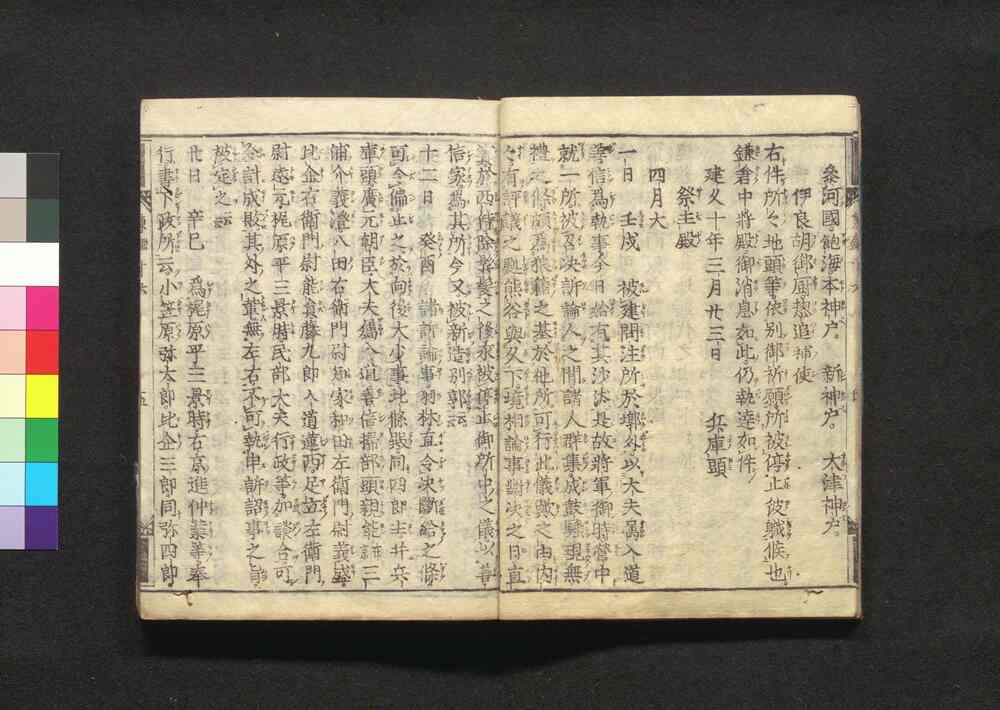 參河國飽海本神戸。　新神戸。　大津神戸。
伊良胡御厨惣追補使
右件所々地頭等依別御祈願所被停止彼職候也
鎌倉中將殿御消息如此仍執達如件
建久十年三月廿三日　　兵庫頭
祭主殿
四月大
一日　壬戌　被建問注所於郭外以大夫屬入道
善信為執事今日始有其沙汰是故將軍御時營中
就一所被召決訴論人之間諸人群集成鼓騷現無
禮之條頗為狼藉之基於他所可行此儀歟之由内
々有評議之處熊谷與久下境相論事對決之日直
實於西侍除鬢髪之後永被停止御所中之儀以善
信家為其所今又被新造別郭云
十二日　癸酉　諸訴論事羽林直令決斷給之條
可令停止之於向後大少事北條殿同四郎主并兵
庫頭廣元朝臣大夫屬入道善信掃部頭親能在三
浦介義澄八田右衛門尉知家和田左衛門尉義盛
比企右衛門尉能員藤九郎入道蓮西足立左衛門
尉遠元梶原平三景時民部大夫行政等加談合可
令計成敗其外之輩無左右不可執申訴詔事之旨
被定之云
廿日　辛巳　為梶原平三景時右京進仲業等奉
行書下政所云小笠原弥太郎比企三郎同弥四郎